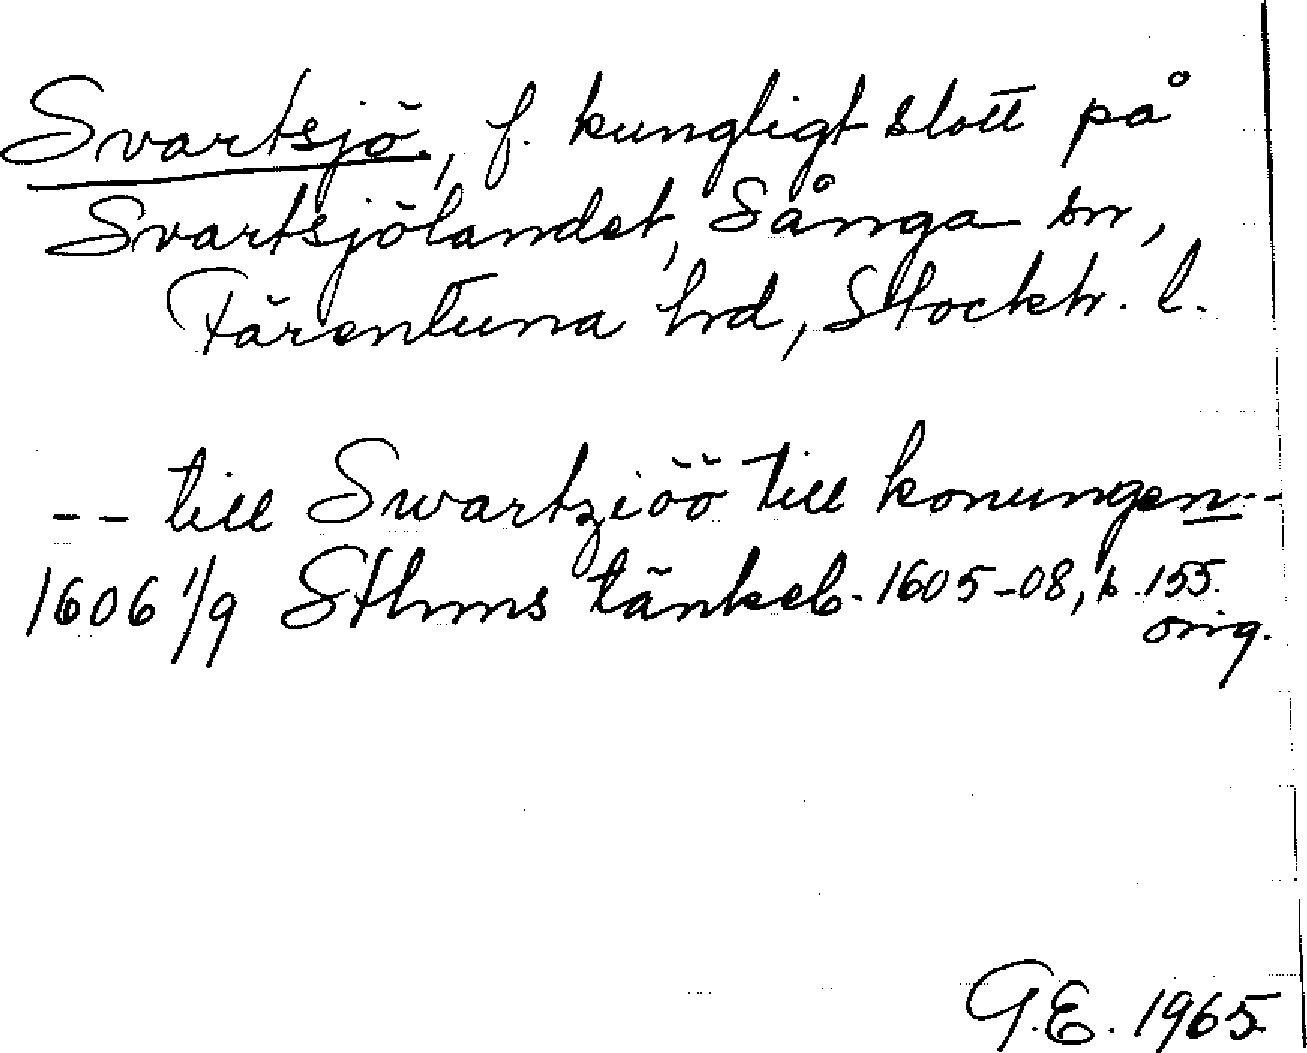 Svartsjö, f. kungligt slott på
Svartsjölandet, Sånga sn,
Färentuna hrd, Stockh. l.
-- till Swartziöö till konungen--
1606 1/9 Sthms tänkeb. 1605-08, s. 155.
orig.
G.E. 1965